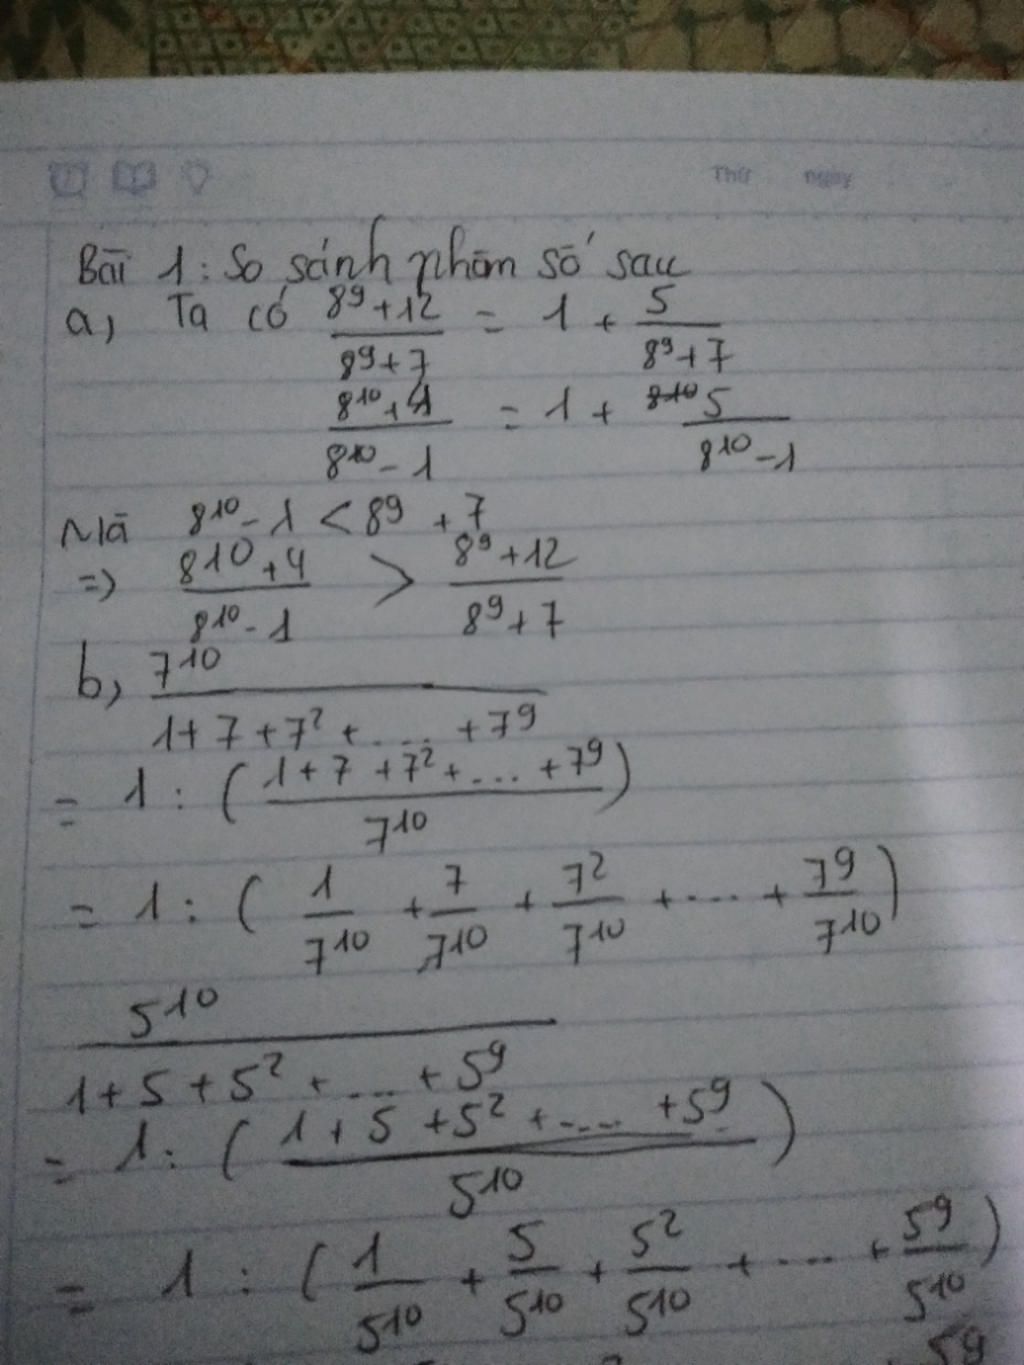 Thứ ngày
Bài 1: So sánh phân số sau
a, Ta có (8^9+12)/(8^9+7) = 1 + 5/(8^9+7)
(8^10+4)/(8^10-1) = 1 + 5/(8^10-1)
Mà 8^10-1 < 8^9+7
=> (8^10+4)/(8^10-1) > (8^9+12)/(8^9+7)
b, 7^10/(1+7+7^2+....+7^9)
= 1 : ((1+7+7^2+...+7^9)/7^10)
= 1 : (1/7^10 + 7/7^10 + 7^2/7^10 + .... + 7^9/7^10)
5^10/(1+5+5^2+...+5^9)
= 1 : ((1+5+5^2+....+5^9)/5^10)
= 1 : (1/5^10 + 5/5^10 + 5^2/5^10 + .... + 5^9/5^10)
5^9